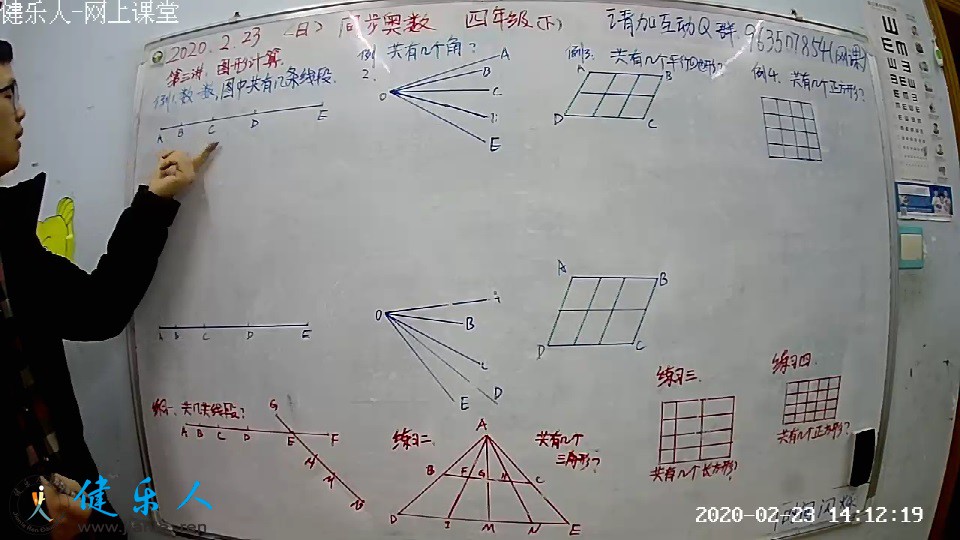 健乐人-网上课堂
2020.2.23 (日) 同步奥数 四年级(下) 请加互动Q群 963507854(网课)
第三讲. 图形计算.
例1.数一数,图中共有几条线段.
A B C D E
例2. 共有几个角?
O A B C E
例3. 共有几个平行四边形?
A B D C
例4. 共有几个正方形?
A B C D E
O B C D E
A B D C
练习一. 共几条线段?
G
A B C D E F
H
练习二.
共有几个三角形?
A
B F G H C
D I M N E
练习三.
共有几个长方形?
练习四.
共有几个正方形?
健乐人
2020-02-23 14:12:19